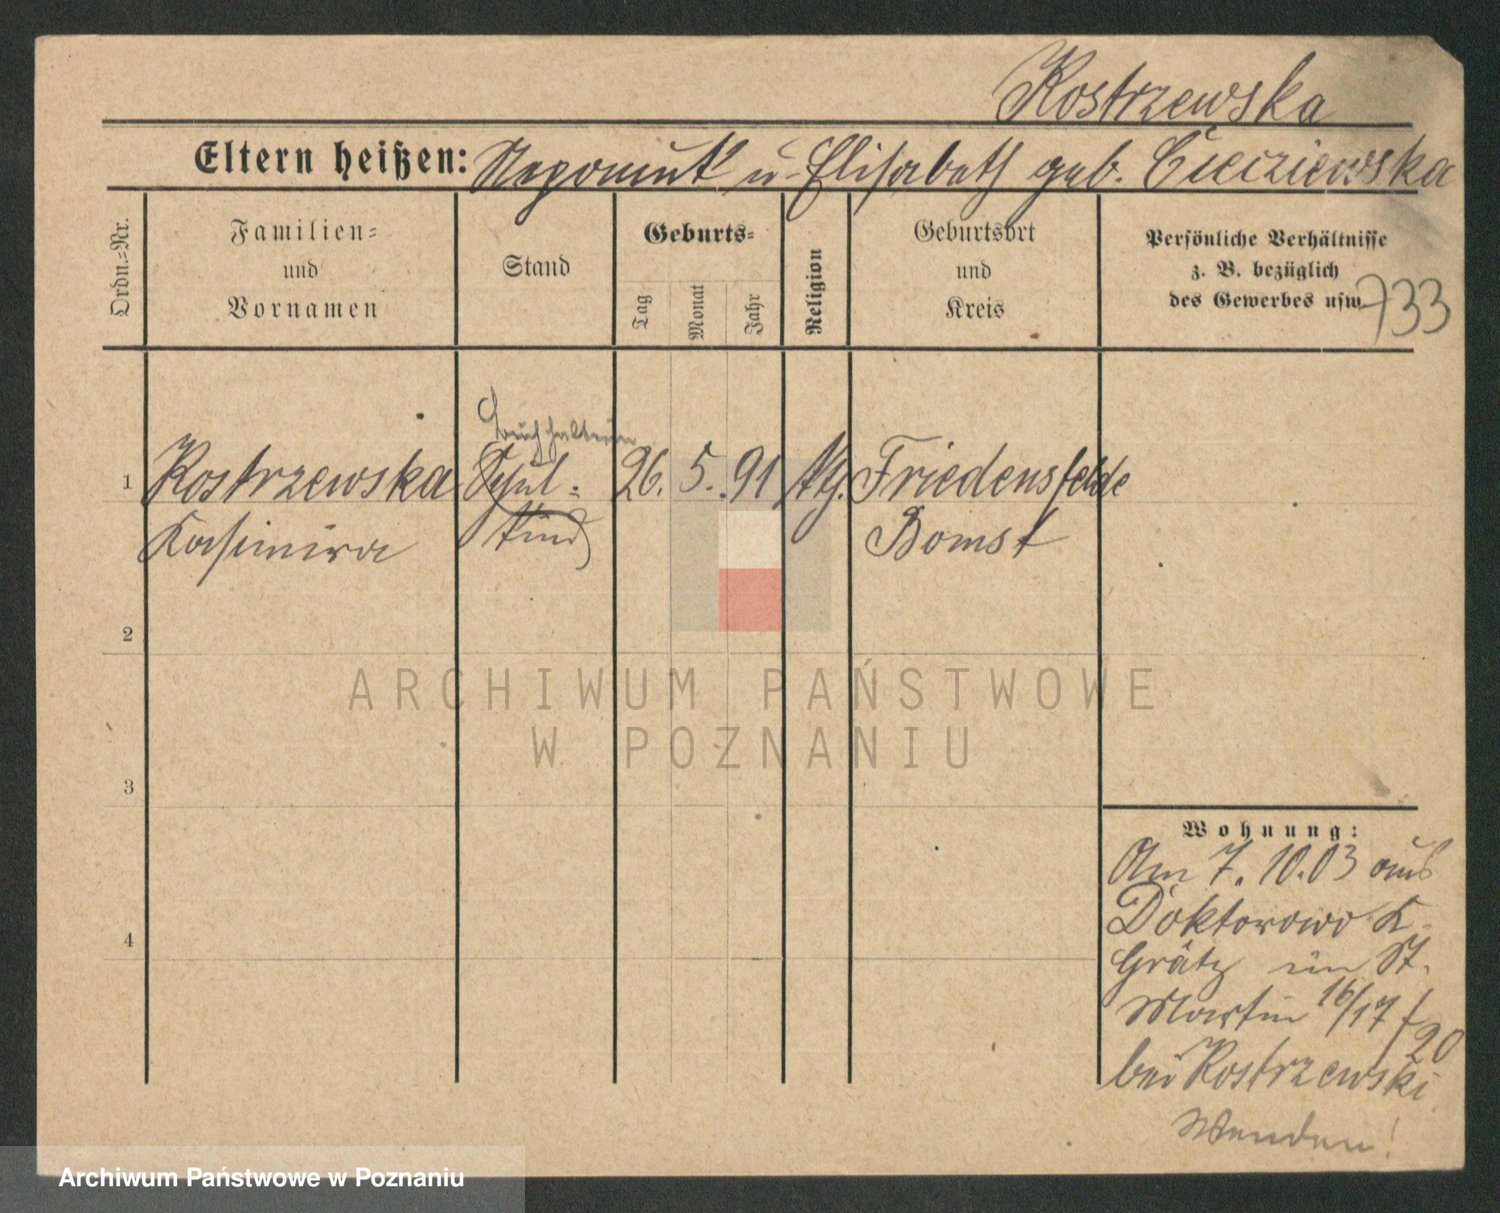 Kostrzewska
Eltern heißen: Nepomuk u. Elisabeth geb.
Ordn.-Nr.
Familien-
und
Vornamen
Stand
Geburts-
Tag
Monat
Jahr
Religion
Geburtsort
und
Kreis
Persönliche Verhältnisse
z. B. bezüglich
des Gewerbes usw.
733
Buchhalterin
1 Kostrzewska Schul- 26. 5. 91 ktg. Friedensfelde
Kasimira kind Bomst
2
3
4
Wohnung:
Am 7. 10. 03 aus
Doktorowo K.
Grätz in St.
Martin 16/17
20
bei Kostrzewski
Wenden!
ARCHIWUM PAŃSTWOWE
W POZNANIU
Archiwum Państwowe w Poznaniu